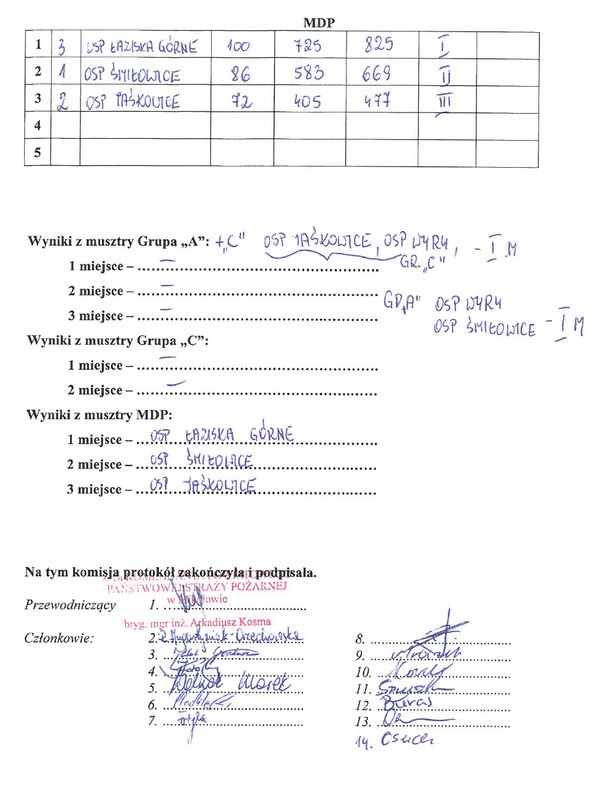 MDP
1 3 OSP ŁAZISKA GÓRNE 100 725 825 I
2 1 OSP ŚMIŁOWICE 86 583 669 II
3 2 OSP JAŚKOWICE 72 405 477 III
4
5
Wyniki z musztry Grupa „A”: + „C” OSP JAŚKOWICE, OSP WYRY, - I M
GR. „C”
1 miejsce – –
2 miejsce – –
GR „A” OSP WYRY
3 miejsce – –
OSP ŚMIŁOWICE - I M
Wyniki z musztry Grupa „C”:
1 miejsce – –
2 miejsce – –
Wyniki z musztry MDP:
1 miejsce – OSP ŁAZISKA GÓRNE
2 miejsce – OSP ŚMIŁOWICE
3 miejsce – OSP JAŚKOWICE
Na tym komisja protokół zakończyła i podpisała.
PAŃSTWOWEJ STRAŻY POŻARNEJ
Przewodniczący 1.
w
bryg. mgr inż. Arkadiusz Kosma
Członkowie: 2.
3.
4.
5. Marek
6.
7.
8.
9.
10.
11.
12. Buras
13.
14.